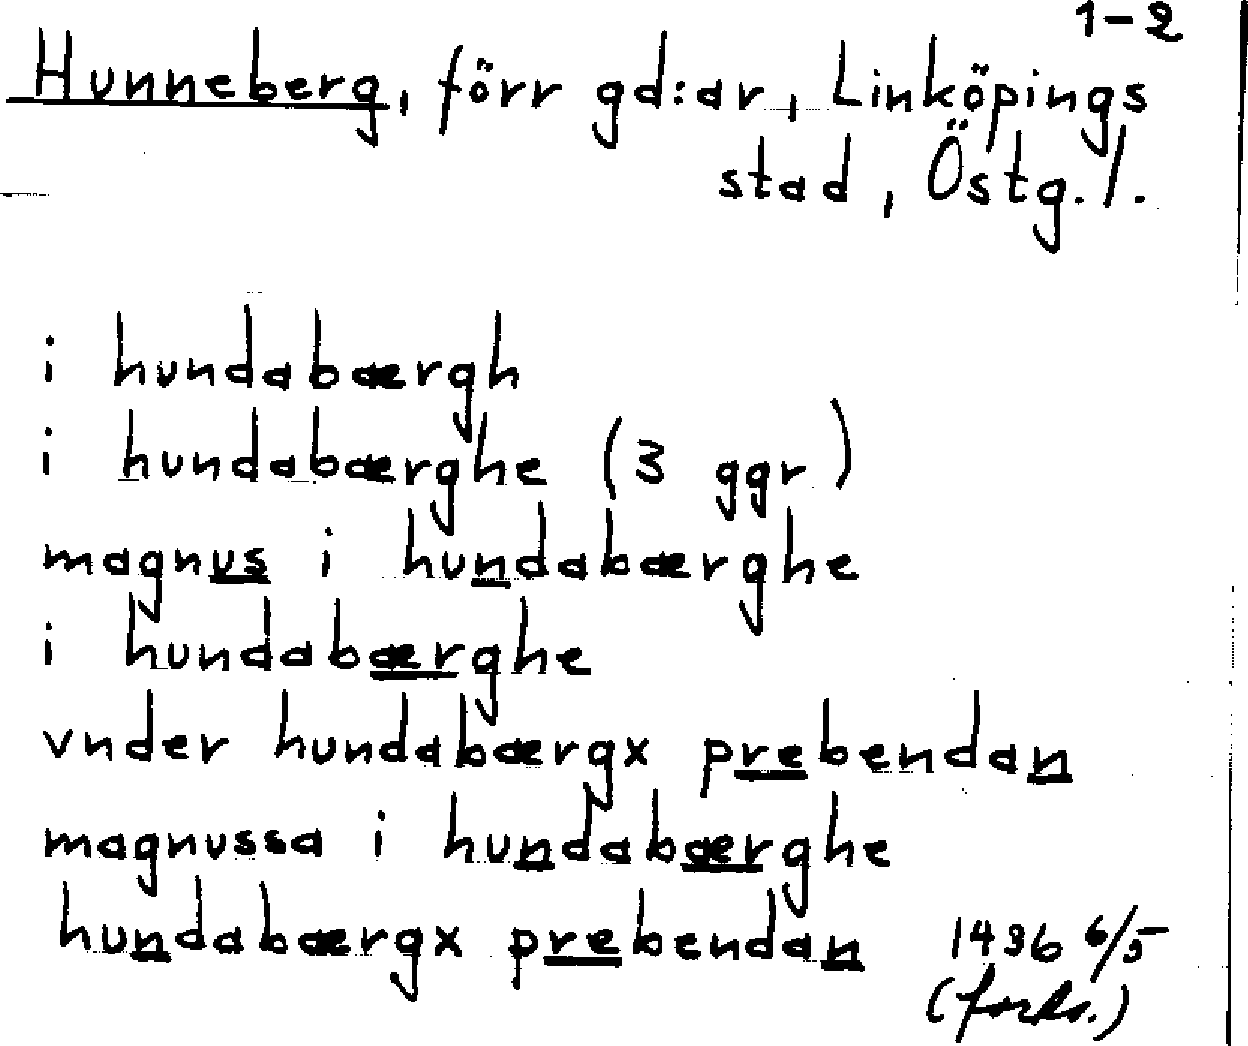 1-2
Hunneberg, förr gd:ar, Linköpings
stad, Östg. l.
i hundabærgh
i hundabærghe (3 ggr)
magnus i hundabærghe
i hundabærghe
vnder hundabærgx prebendan
magnussa i hundabærghe
hundabærgx prebendan 1436 6/5
(forts.)